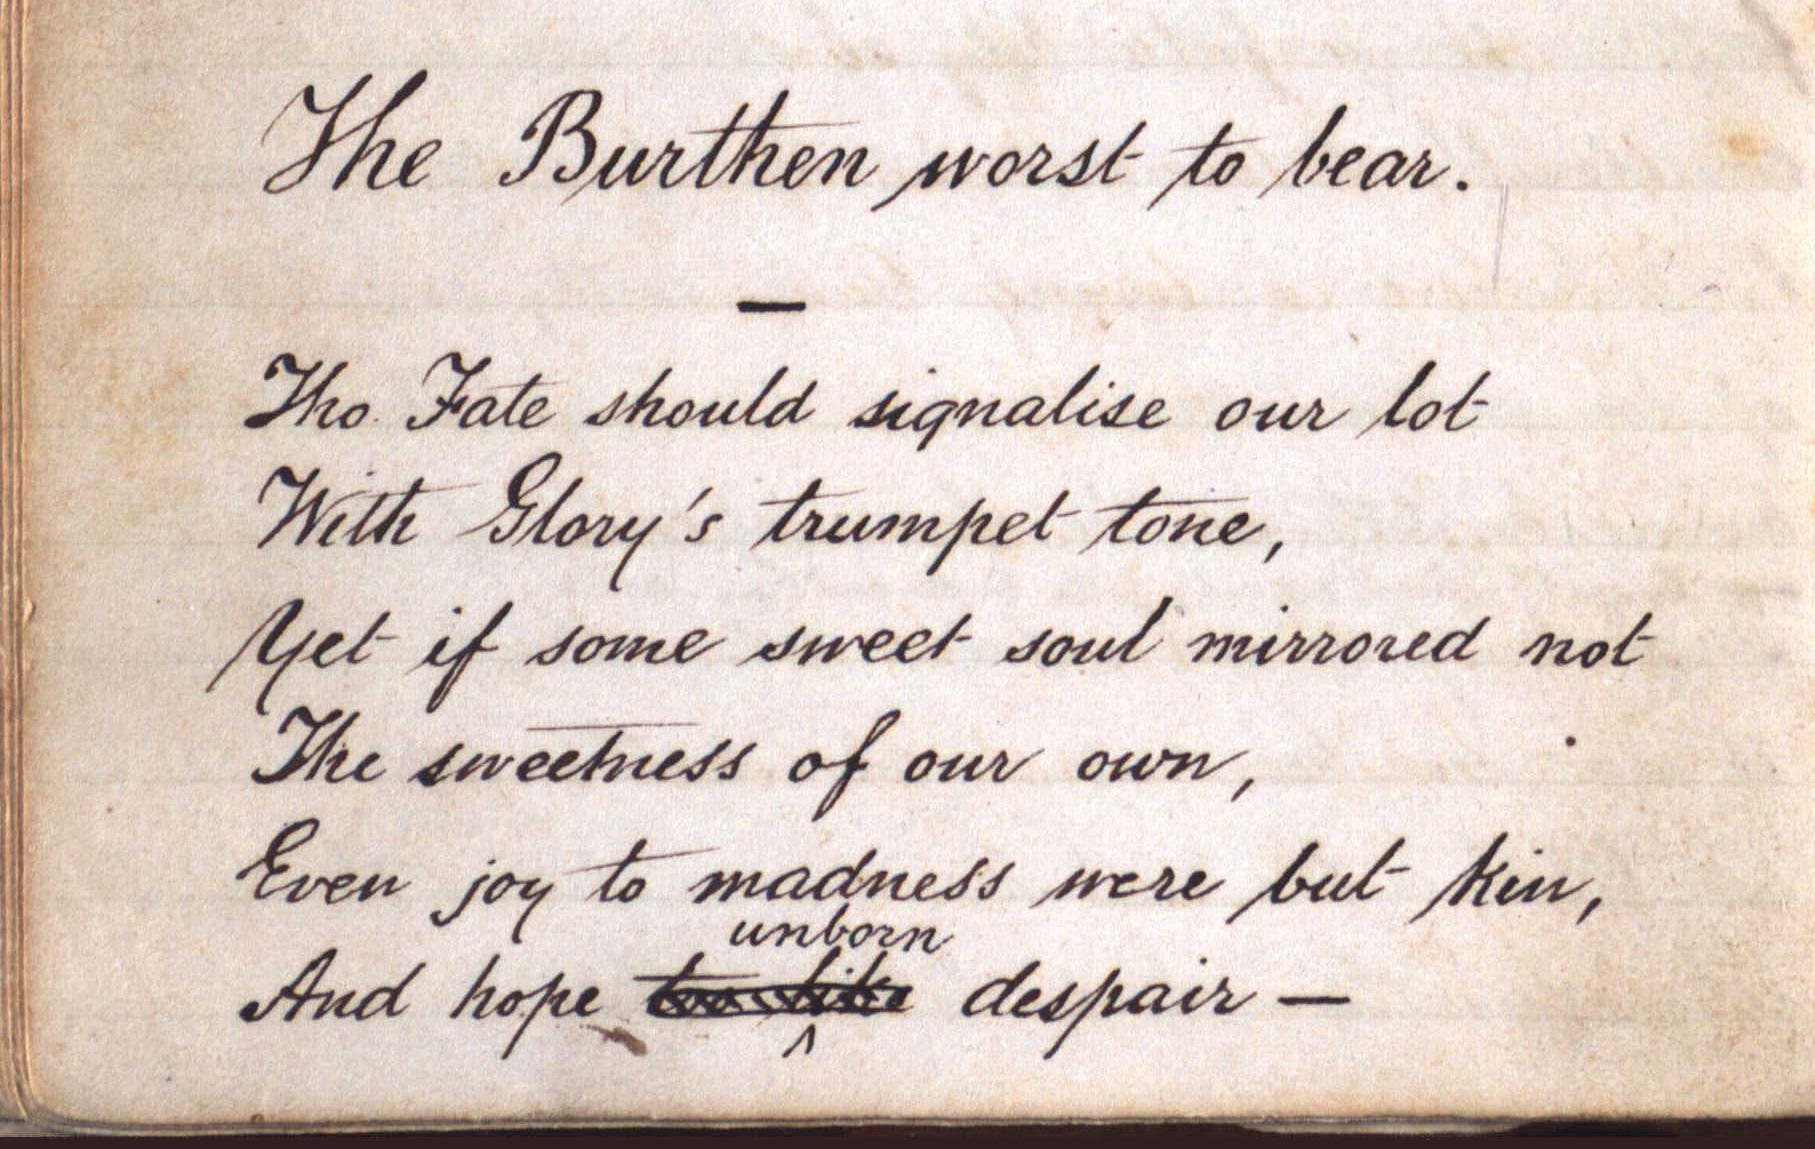 The Burthen worst to bear.
—
Tho Fate should signalise our lot
With Glory's trumpet tone,
Yet if some sweet soul mirrored not
The sweetness of our own,
Even joy to madness were but kin,
unborn
And hope despair —